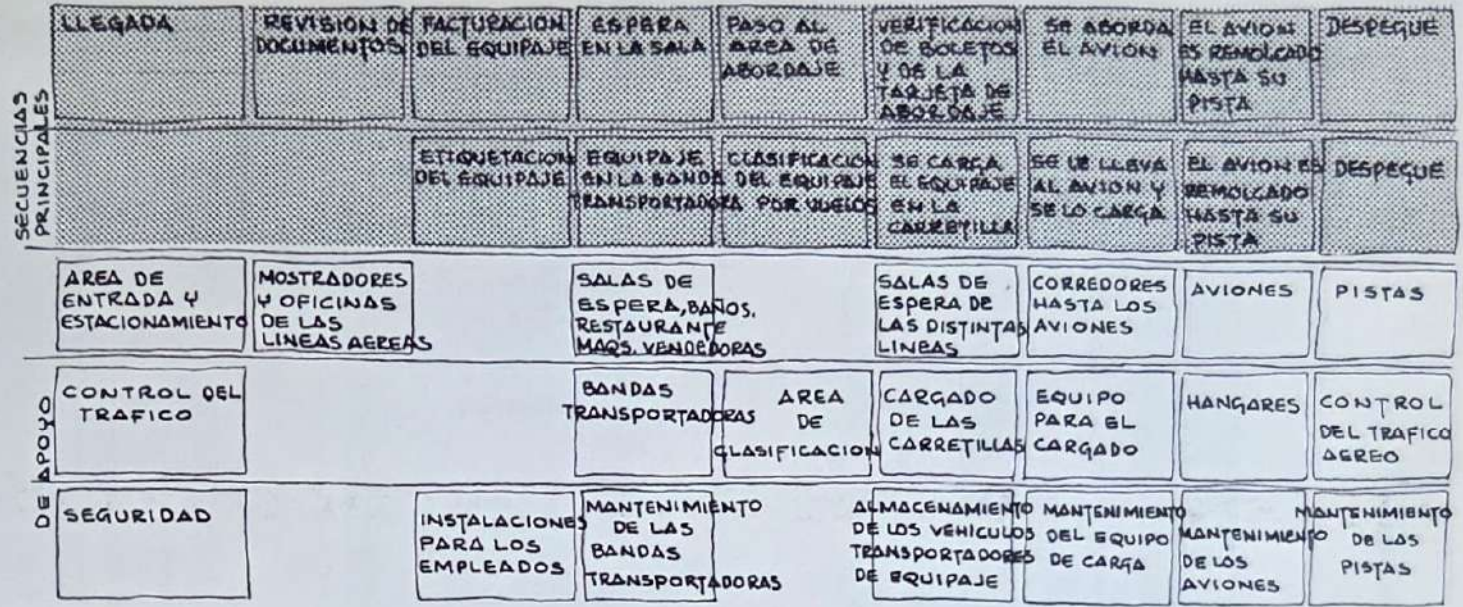 SECUENCIAS
PRINCIPALES
LLEGADA
REVISION DE
DOCUMENTOS
FACTURACION
DEL EQUIPAJE
ESPERA
EN LA SALA
PASO AL
AREA DE
ABORDAJE
VERIFICACION
DE BOLETOS
Y DE LA
TARJETA DE
ABORDAJE
SE ABORDA
EL AVION
EL AVION
ES REMOLCADO
HASTA SU
PISTA
DESPEGUE
ETIQUETACION
DEL EQUIPAJE
EQUIPAJE
EN LA BANDA
TRANSPORTADORA
CLASIFICACION
DEL EQUIPAJE
POR VUELOS
SE CARGA
EL EQUIPAJE
EN LA
CARRETILLA
SE LE LLEVA
AL AVION Y
SE LO CARGA
EL AVION ES
REMOLCADO
HASTA SU
PISTA
DESPEGUE
DE APOYO
AREA DE
ENTRADA Y
ESTACIONAMIENTO
MOSTRADORES
Y OFICINAS
DE LAS
LINEAS AEREAS
SALAS DE
ESPERA, BAÑOS,
RESTAURANTE
MAQS. VENDEDORAS
SALAS DE
ESPERA DE
LAS DISTINTAS
LINEAS
CORREDORES
HASTA LOS
AVIONES
AVIONES
PISTAS
CONTROL DEL
TRAFICO
BANDAS
TRANSPORTADORAS
AREA
DE
CLASIFICACION
CARGADO
DE LAS
CARRETILLAS
EQUIPO
PARA EL
CARGADO
HANGARES
CONTROL
DEL TRAFICO
AEREO
SEGURIDAD
INSTALACIONES
PARA LOS
EMPLEADOS
MANTENIMIENTO
DE LAS
BANDAS
TRANSPORTADORAS
ALMACENAMIENTO
DE LOS VEHICULOS
TRANSPORTADORES
DE EQUIPAJE
MANTENIMIENTO
DEL EQUIPO
DE CARGA
MANTENIMIENTO
DE LOS
AVIONES
MANTENIMIENTO
DE LAS
PISTAS